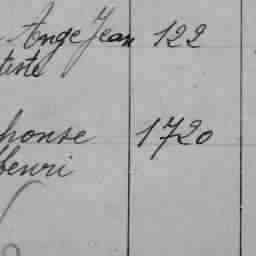 Ange Jean 122
tiste
phonse 1720
Henri